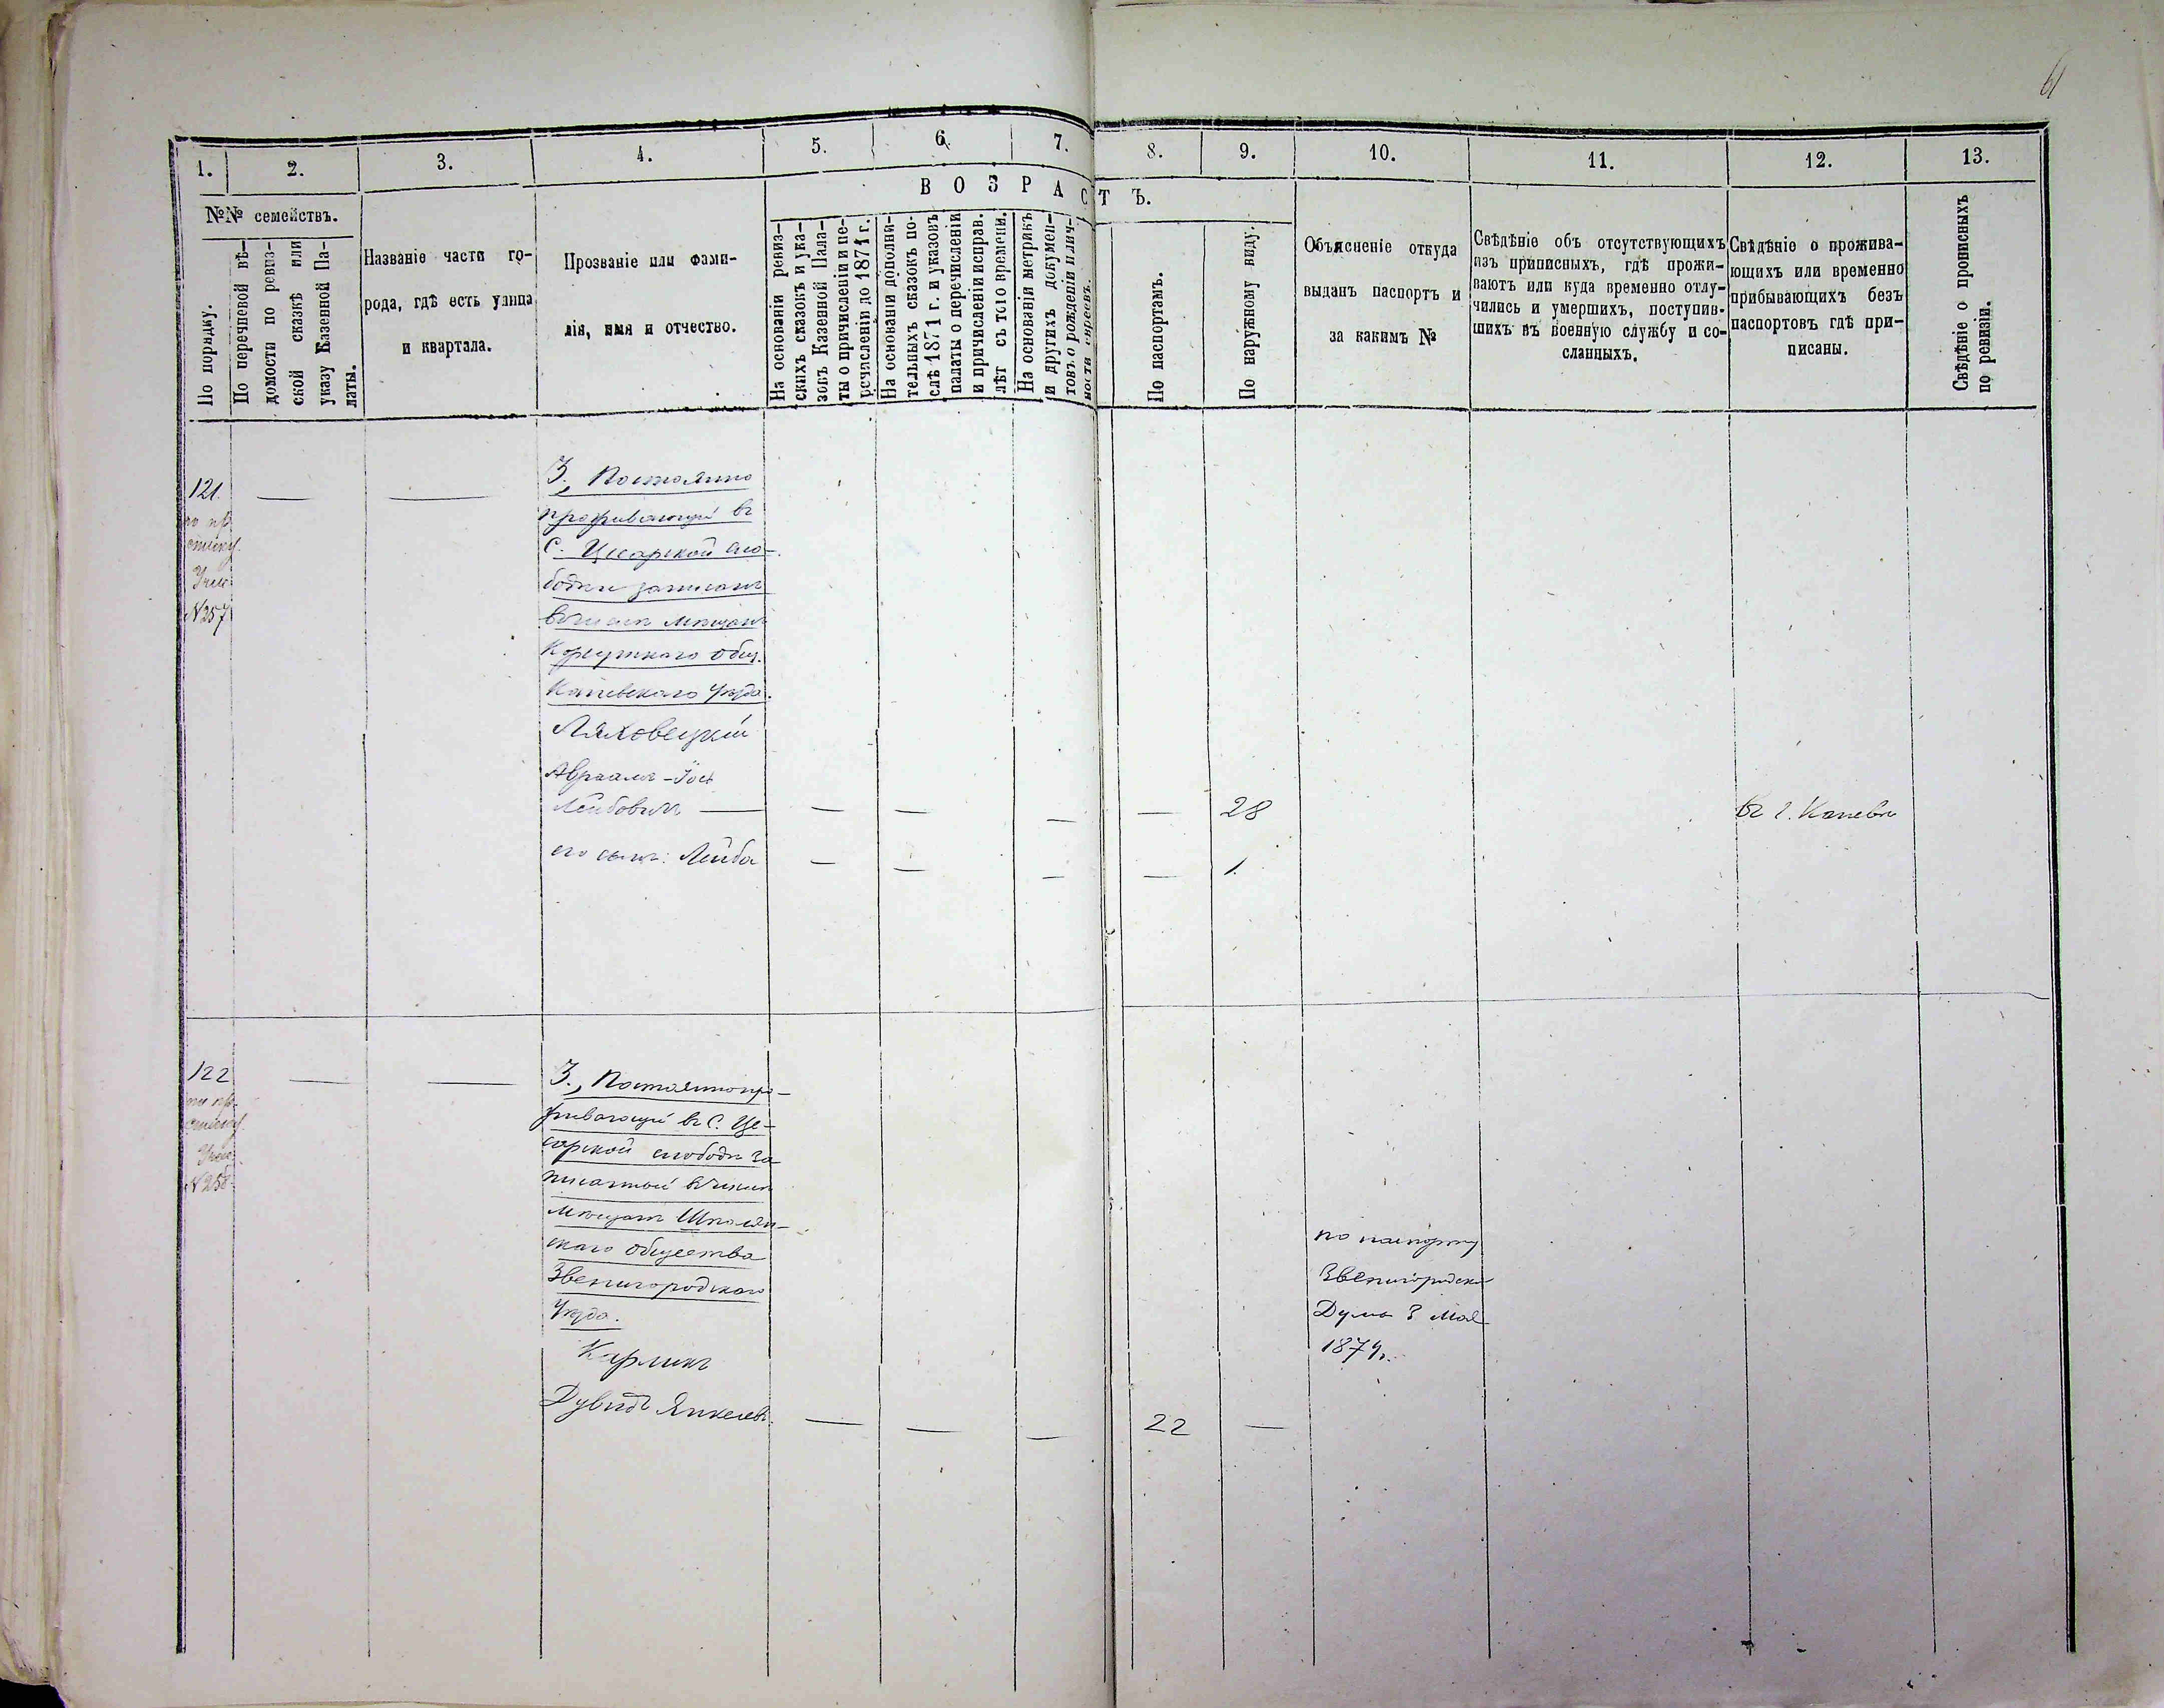 61
1. 2. 3. 4. 5. 6. 7. 8. 9. 10. 11. 12. 13.
ВОЗРАСТЪ.
№№ семействъ.
По порядку.
По перечневой вѣ-
домости по ревиз-
ской сказкѣ или
указу Казенной Па-
латы.
Названіе части го-
рода, гдѣ есть улица
и квартала.
Прозваніе или Фами-
лія, имя и отчество.
На основаніи ревиз-
скихъ сказокъ и ука-
зовъ Казенной Пала-
ты о причисленіи и пе-
речисленіи до 1871 г.
На основаніи дополни-
тельныхъ сказокъ по-
слѣ 1871 г. и указовъ
палаты о перечисленіи
и причисленіи исправ.
лѣт съ того времени.
На основаніи метрикъ
и другихъ докумен-
товъ о рожденіи и лич-
ности евреевъ.
По паспортамъ.
По наружному виду.
Объясненіе откуда
выданъ паспортъ и
за какимъ №
Свѣдѣніе объ отсутствующихъ
изъ приписныхъ, гдѣ прожи-
ваютъ или куда временно отлу-
чились и умершихъ, поступив-
шихъ въ военную службу и со-
сланныхъ.
Свѣдѣніе о прожива-
ющихъ или временно
прибывающихъ безъ
паспортовъ гдѣ при-
писаны.
Свѣдѣніе о прописныхъ
по ревизіи.
121 — — 3., Постоянно
проживающій въ
С. Цесарской сло-
бодки записанъ
въ числѣ мѣщанъ
Корсунскаго общ.
Каневскаго уѣзда.
№ 257
Ляховецкій
Авраамъ-Іось
Лейбовичъ — — — — — 28 Въ г. Каневѣ
его сынъ: Лейба — — — — 1.
122 — — 3., Постояннопро-
живающій въ С. Це-
сарской слободѣ за
писанной въ числѣ
мѣщанъ Шполян-
скаго общества
Звенигородскаго
Уѣзда.
№ 258
по паспорту
Звенигородской
Думы 3 Мая
1874г.
Карликъ
Дувидъ Янкелев. — — — 22 —